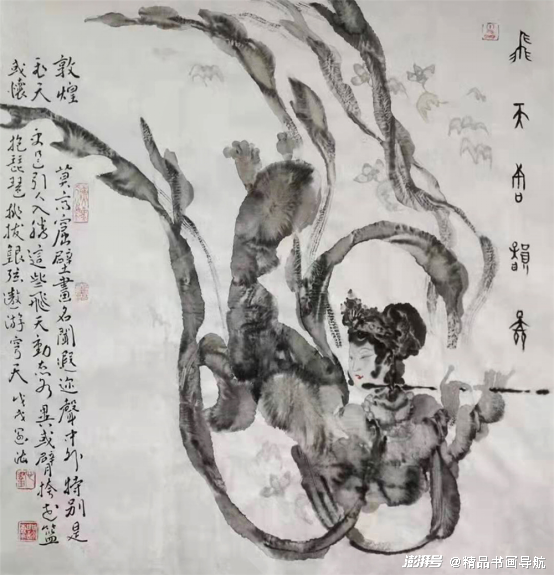 飛天韻
敦煌莫高窟壁畫名聞遐迩聲中外特别是
飛天引人入勝這些飛天動态各異或臂挎花籃
或懷抱琵琶挑拔銀弦遨游穹天戊戌
澎湃号 @精品书画导航